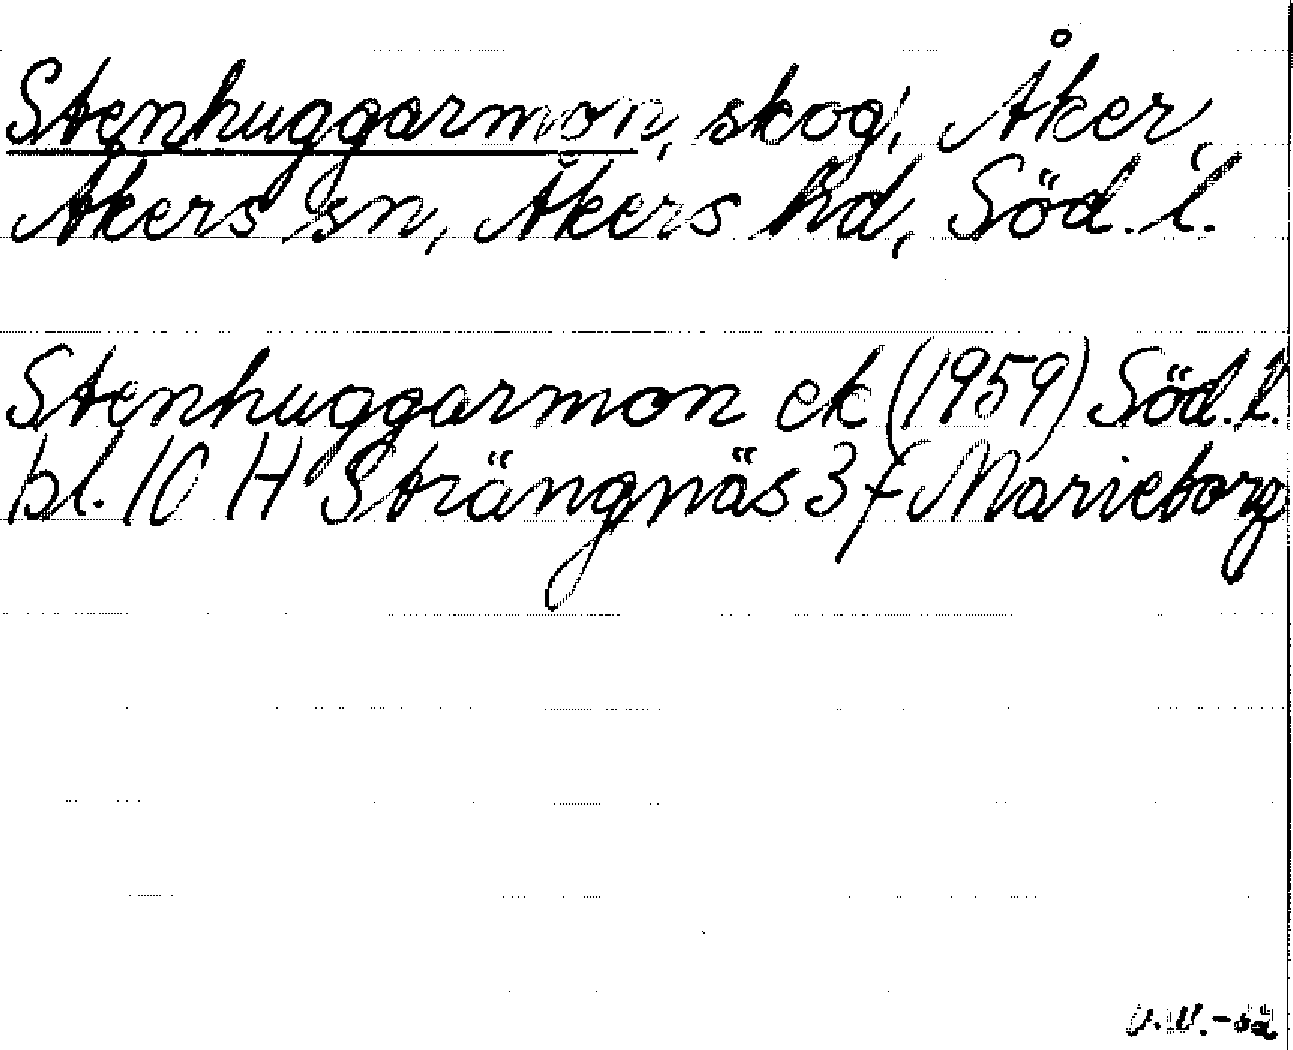 Stenhuggarmon, skog, Åker,
Åkers sn, Åkers hd, Söd. l.
Stenhuggarmon ek (1959) Söd. l.
bl. 10 H Strängnäs 3 f Marieborg